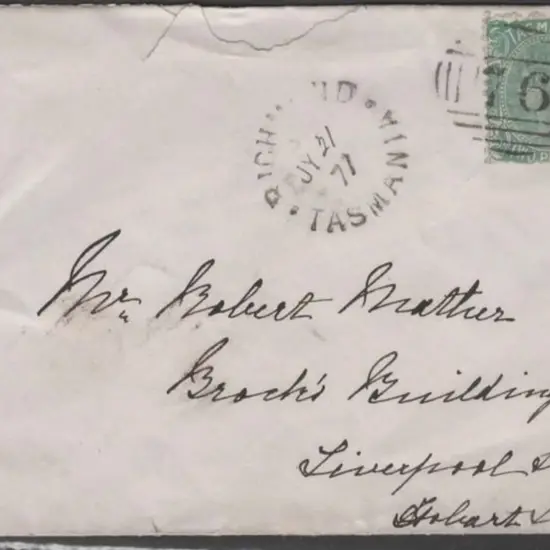 TASM
76
P
RICHMOND
JY 21
77
TASMANIA
Mr. Robert Mather
Brock's Building
Liverpool S
Hobart